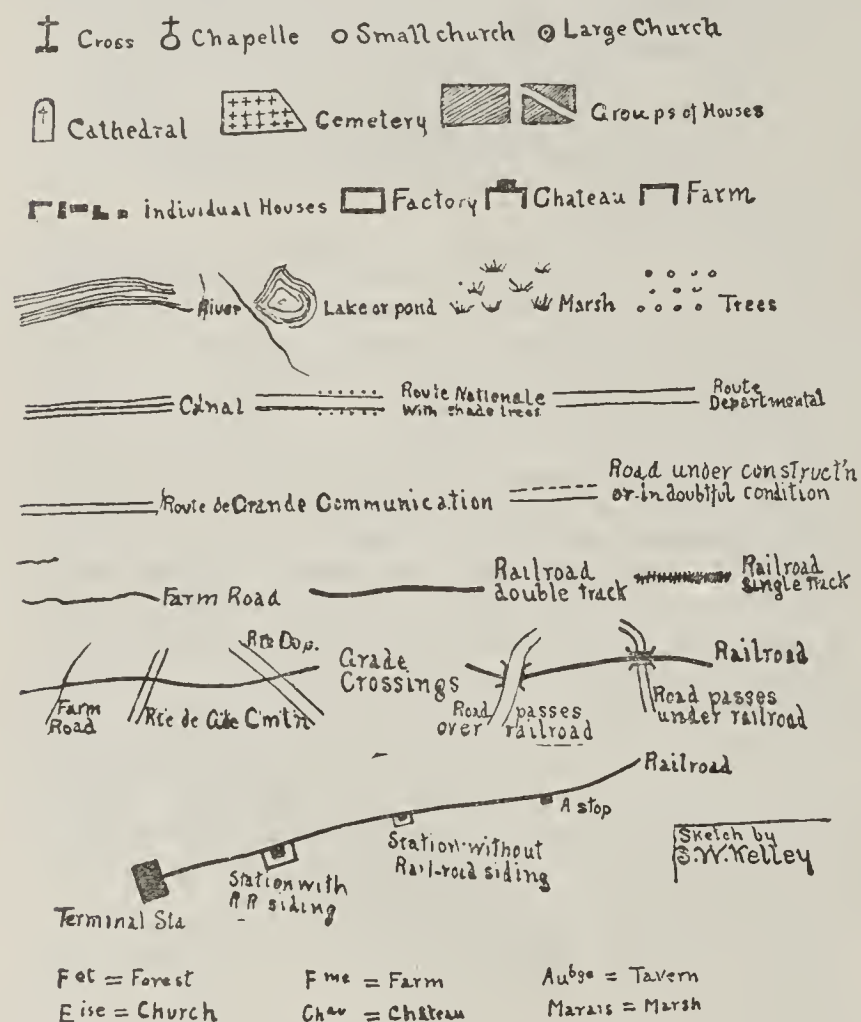 Cross Chapelle Small church Large Church
Cathedral Cemetery Groups of Houses
individual Houses Factory Chateau Farm
River Lake or pond Marsh Trees
Canal Route Nationale With shade trees Route Departmental
Route de Grande Communication Road under construct'n or in doubtful condition
Farm Road Railroad double track Railroad single track
Rte Dep.
Grade Crossings Railroad
Farm Road Rte de Gde Cm't'n Road passes over railroad Road passes under railroad
Railroad
A stop
Station without Rail-road siding
Station with RR siding
Terminal Sta
Sketch by
S.W. Kelley
Fet = Forest Fme = Farm Aubge = Tavern
Eise = Church Chau = Château Marais = Marsh